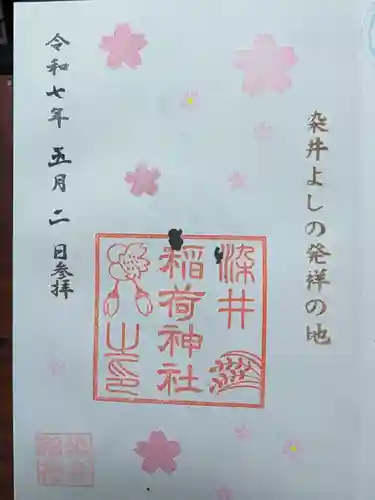 染井よしの発祥の地
染井
稲荷神社
之印
令和七年五月二日参拝